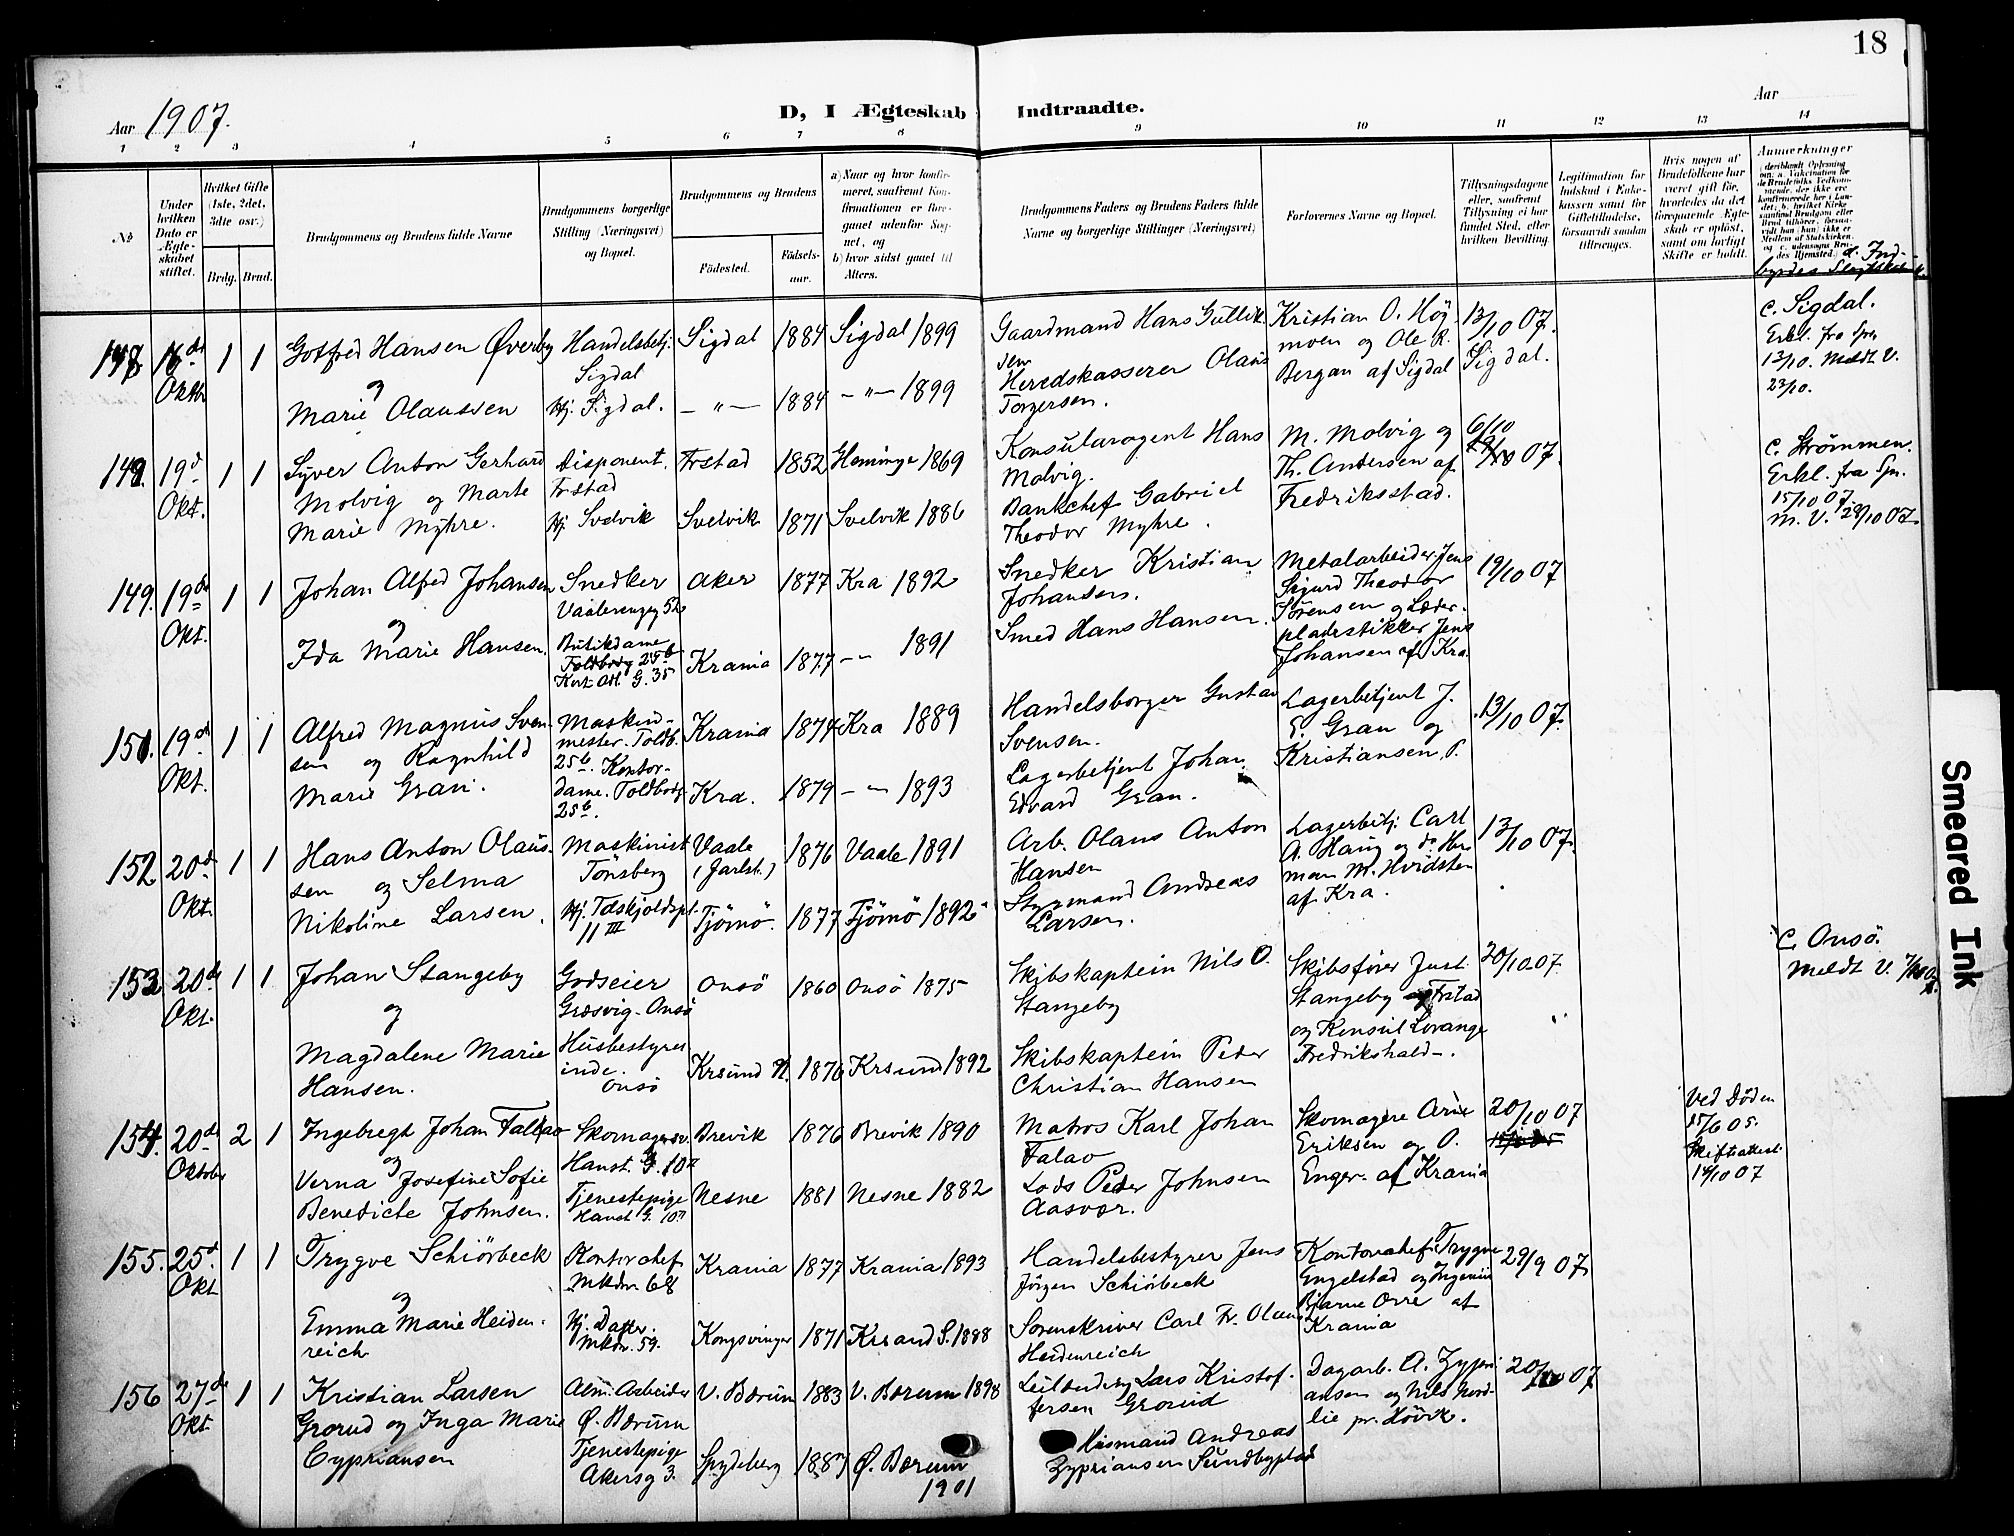 18
Aar 1907.
D, I Ægteskab Indtraadte.
Aar
1 2 3 4 5 6 7 8 9 10 11 12 13 14
No
Under hvilken Dato er Ægteskabet stiftet.
Hvilket Gifte (1ste, 2det, 3dte osv.)
Brdg. Brud.
Brudgommens og Brudens fulde Navne
Brudgommens borgerlige Stilling (Næringsvei) og Bopæl.
Brudgommens og Brudens
Fødested. Fødselsaar.
a) Naar og hvor konfirmeret, saafremt Konfirmationen er foregaaet udenfor Sognet, og
b) hvor sidst gaaet til Alters.
Brudgommens Faders og Brudens Faders fulde Navne og borgerlige Stillinger (Næringsvei)
Forlovernes Navne og Bopæl.
Tillysningsdagene eller, saafremt Tillysning ei har fundet Sted, efter hvilken Bevilling.
Legitimation for Indskud i Enkekassen samt for Giftetilladelse, forsaavidt saadan tiltrænges.
Hvis nogen af Brudefolkene har været gift før, hvorledes da det foregaaende Ægteskab er opløst, samt om lovligt Skifte er holdt.
Anmærkninger
147. 18de Oktbr 1 1
Gotfred Hansen Øverby
og
Marie Olaussen
Handelsbetj. Sigdal
Hj. Sigdal.
Sigdal 1884 Sigdal 1899
— " — 1884 — " — 1899
Gaardmand Hans Gullik.
sen
Heredskasserer Olaus
Torgersen.
Kristian O. Høj
moen og Ole R.
Bergan af Sigdal
13/10 07.
Sigdal.
c. Sigdal.
Erkl. fra Spr
12/10. Meldt V.
23/10.
148. 19d Okt. 1 1
Syver Anton Gerhard
Molvig og Marte
Marie Myhre.
Disponent.
Frstad
Hj. Svelvik
Frstad 1852 1869
Svelvik 1871 Svelvik 1886
Konsularagent Hans
Molvig.
Bankchef Gabriel
Theodor Myhre.
M. Molvig og
Th. Andersen af
Fredriksstad.
6/10 07.
c. Strømmen.
Erkl. fra Spr.
15/10 07.
M. V. 29/10 07
149. 19de Okt. 1 1
Johan Alfred Johansen
og
Ida Marie Hansen.
Snedker
Butikdame
Toldbodg 25b
Aker 1877 Kra 1892
Krania 1877 — " 1891
Snedker Kristian
Johansen.
Smed Hans Hansen.
Metalarbeider Jens
Sigurd Theodor
Sørensen og Læder-
Johansen af Kra.
19/10 07
151. 19d Okt. 1 1
Alfred Magnus Sven-
sen og Ragnhild
Marie Gran.
Maskin-
mester. Toldb.
25b. Kontor-
dame. Toldbodg.
25b.
Krania 1874 Kra 1889
Kra. 1879 — " — 1893
Handelsborger Gustav
Svensen.
Lagerbetjent Johan
Edvard Gran.
Lagerbetjent J.
E. Gran og
Kristiansen P.
13/10 07.
152 20d Okt. 1 1
Hans Anton Olaus-
sen og Selma
Nikoline Larsen.
Maskinist
Tönsberg
11 III
Vaale
(Jarlsb.) 1876 Vaale 1891
Tjömö. 1877 Tjömö 1892
Arb. Olaus Anton
Hansen
Styrmand Andreas
Larsen.
Lagerbetj. Carl
A. Haug og do Her
man M. Hvidsten
af Kra.
13/10 07.
153 20de Okt. 1 1
Johan Stangeby
og
Magdalene Marie
Hansen.
Godseier
Græsvig. Onsö
Husbestyrer
inde.
Onsö
Onsö 1860 Onsö 1875
Krsund N. 1876 Krsund 1892
Skibskaptein Nils O.
Stangeby
Skibskaptein Peder
Christian Hansen
Skibsfører Just
Stangeby Frstad
og Konsul Lorange
Fredrikshald.
20/10 07.
c. Onsö.
Meldt V.
154. 20de Oktober 2 1
Ingebregt Johan Falkao
og
Verna Josefine Sofie
Benedicte Johnsen.
Skomagersv.
Hanst. G. 10II
Tjenestepige
Hanst G. 10II
Brevik 1876 Brevik 1890
Nesne 1881 Nesne 1882
Matros Karl Johan
Falao
Lods Peder Johnsen
Aasvær.
Skomagere Arne
Eriksen og O.
Enger. af Krania
20/10 07
Ved Døden
15/6 05.
Skifteattest.
14/10 07
155. 25d. Okt 1 1
Trygve Schiørbeck
og
Emma Marie Heiden-
reich
Kontorchef
Mkdn. 68
Hj. Datter.
Mkdn. 59.
Krania 1877 Krania 1893
Kongsvinger 1871 Krsand S. 1888
Handelsbestyrer Jens
Jörgen Schiörbeck
Sorenskriver Carl Fr. Olaus
Heidenreich
Kontorchef Trygve
Engelstad og Ingeniør
Bjarne Orre af
Krania
29/9 07.
156 27de Okt. 1 1
Kristian Larsen
Grorud og Inga Marie
Cypriansen
Alm. Arbeider
Ø. Bærum
Tjenestepige
Akersg 3.
V. Bærum 1883 V. Bærum 1898
Spydeberg 1887 Ø. Bærum
1901
Leilænding Lars Kristof-
fersen Grorud
Husmand Andreas
Zypriansen Sundbyplad
Dagarb. A. Zypri
ansen og Nils Nord-
lie pr. Hövik.
20/10 07
Smeared Ink